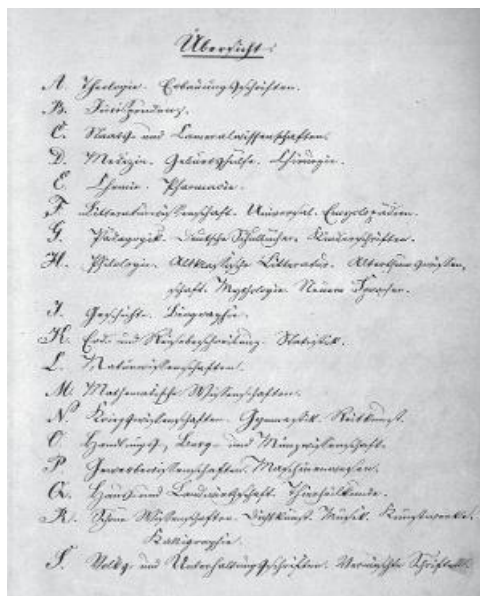 Übersicht:
A. Theologie. Erbauungsschriften.
B. Jurisprudenz.
C. Staats- und Cameralwissenschaften.
D. Medizin. Geburtshülfe. Chirurgie.
E. Chemie. Pharmacie.
F. Litteraturwissenschaft. Universal. Encyclopädien.
G. Pädagogik. Deutsche Schulbücher. Kinderschriften.
H. Philologie. Altklassische Litteratur. Alterthumswissen-
schaft. Mythologie. Neuere Sprachen.
I. Geschichte. Biographie.
K. Erd- und Reisebeschreibung. Statistik.
L. Naturwissenschaften.
M. Mathematische Wissenschaften.
N. Kriegswissenschaften. Gymnastik. Reitkunst.
O. Handlungs-, Berg- und Münzwissenschaft.
P. Gewerbswissenschaften. Maschinenwesen.
Q. Haus- und Landwirthschaft. Thierheilkunde.
R. Schöne Wissenschaften. Dichtkunst. Musik. Kunstwerke.
Kalligraphie.
S. Volks- und Unterhaltungsschriften. Vermischte Schriften.